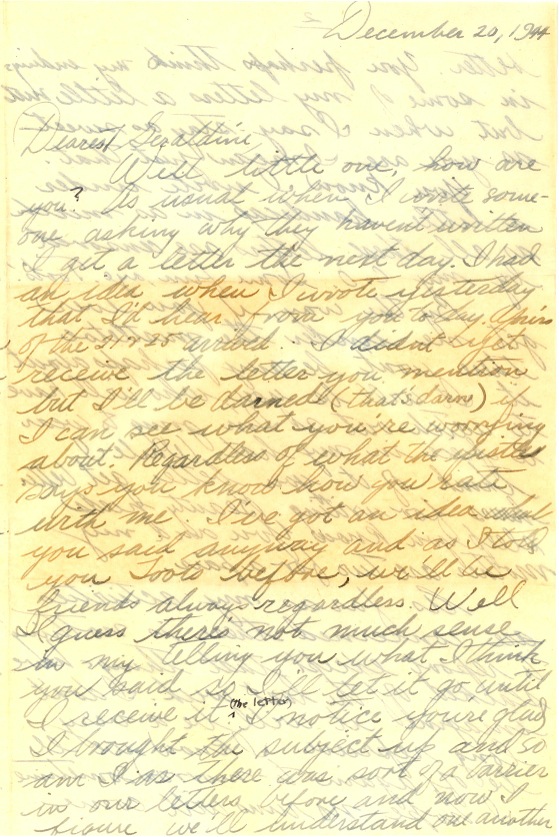 December 20, 1944
Dearest Geraldine,
Well little one, how are
you? As usual when I write some-
one asking why they havent written
I get a letter the next day. I had
an idea when I wrote yesterday
that I'd hear from you today.
of the arrived. I didnt yet
receive the letter you mention
but I'll be darned (that's darn) if
I can see what you're worrying
about. Regardless of what the
says you know how you rate
with me. I've got an idea what
you said anyway and as I told
you Toots before, we'll be
friends always regardless. Well
I guess there's not much sense
in my telling you what I think
you said so I'll let it go until
I receive it (the letter) I notice you're glad
I brought the subject up and so
am I as there was sort of a barrier
in our letters before and now I
figure we'll understand one another